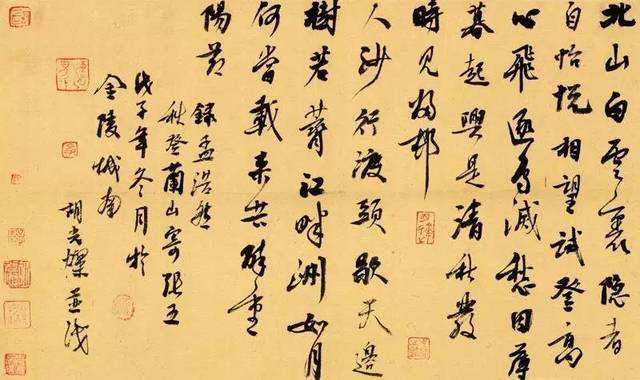 北山白雲裏隐者
自怡悦相望試登高
心飛逐鳥滅愁因薄
暮起興是清秋發
時見歸邨
人沙行渡頭歇天邊
樹若薺江畔洲如月
何當載来共醉重
陽節
錄孟浩然
秋登蘭山寄張五
戊子年冬月於
金陵城南
胡 並識